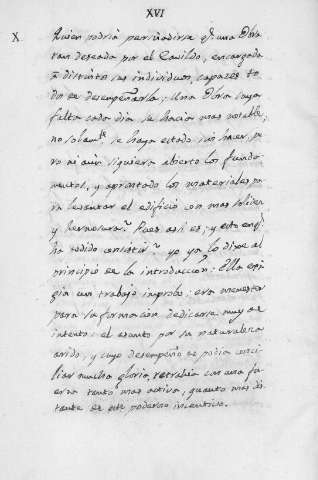 XVI
X. Quien podria persuadirse q.e una Obra
tan deseada por el Cavildo, encargada
à distintos sus individuos, capazes to-
dos de desempeñarla; Una Obra cuya
falta cada dia se hacia mas notable,
no solam.te se haya estado sin hacer, pe-
ro ni aun siquiera abierto los funda-
mentos, y aprontado los materiales pa-
ra levantar el edificio con mas solidez
y hermosura? Pues asi es; y esto en q.e
ha podido consistir? yo ya lo dixe al
principio de la introduccion: Ella exi-
gia un trabajo improbo; era menester
para su formacion dedicarse muy de
intento: el asunto por su naturaleza
arido, y cuyo desempeño no podia conci-
liar mucha gloria, retrahia con una fu-
erza tanto mas activa, quanto mas dis-
tante de este poderoso incentivo.